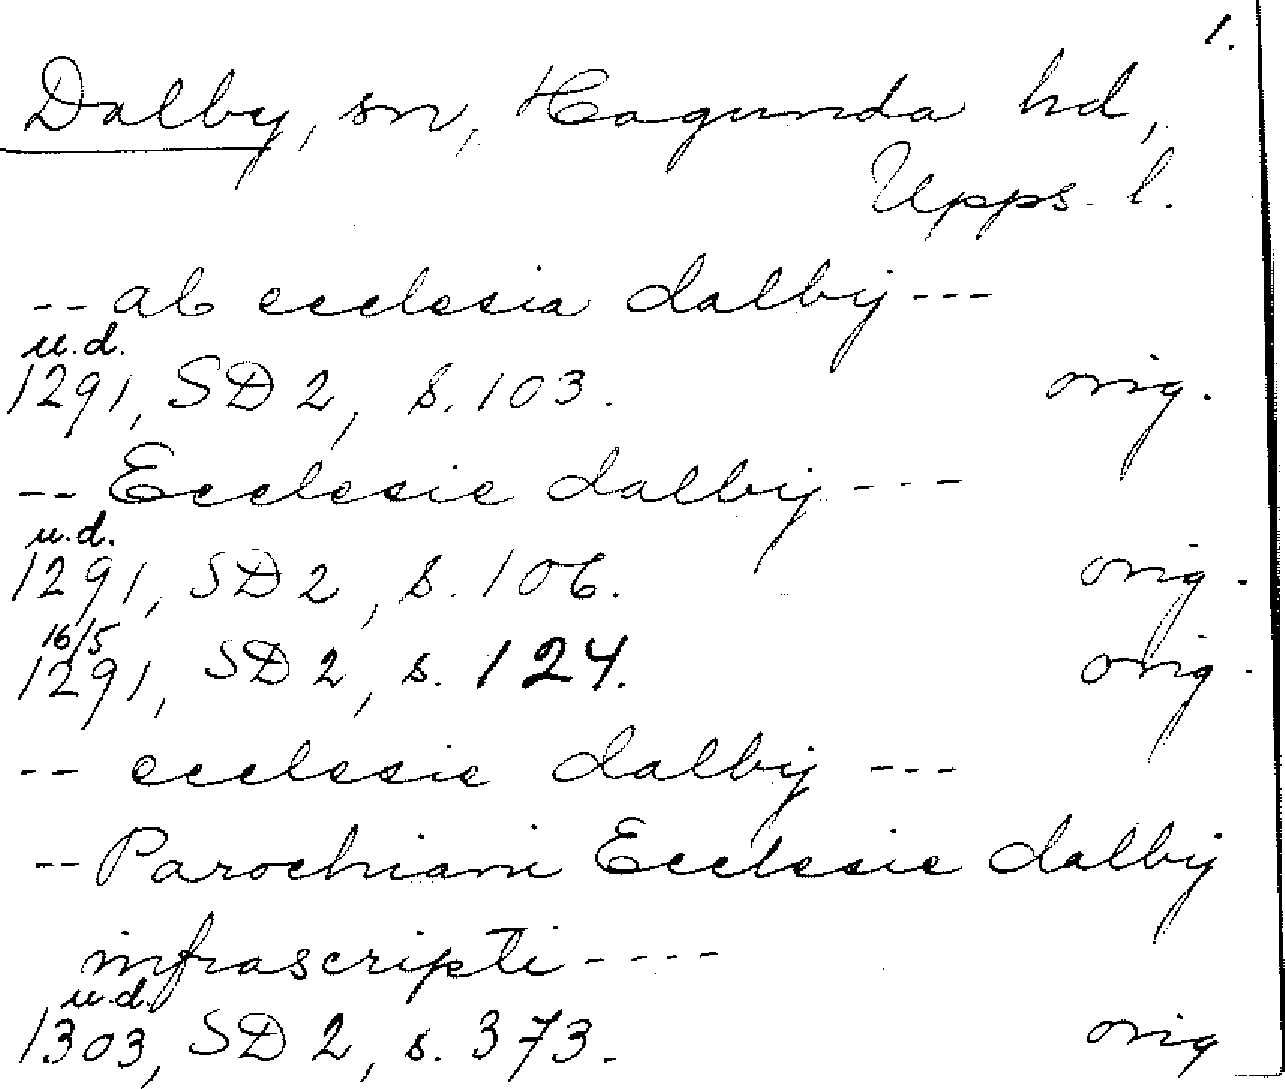 1.
Dalby, sn, Hagunda hd,
Upps. l.
-- ab ecclesia dalby ---
u.d.
1291, SD 2, s. 103. orig.
-- Ecclesie dalby ---
u.d.
1291, SD 2, s. 106. orig.
16/5
1291, SD 2, s. 124. orig.
-- ecclesie dalby ---
-- Parochiani Ecclesie dalby
infrascripti ----
u.d.
1303, SD 2, s. 373. orig